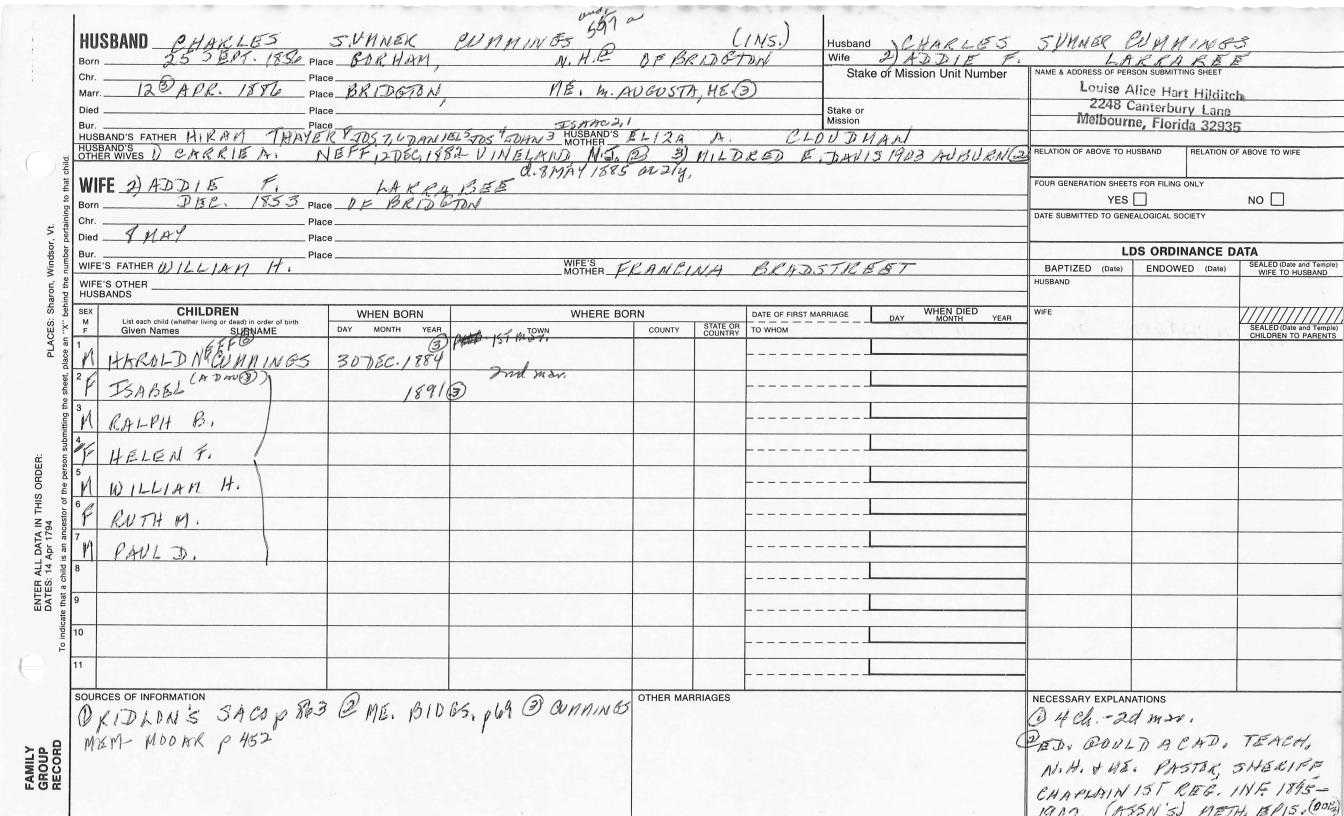 HUSBAND CHARLES SUMNER CUMMINGS (INS.)
597 a
Born 25 SEPT. 1856 Place GORHAM, N.H. ② OF BRIDGTON
Chr. Place
Marr. 12 ③ APR. 1886 Place BRIDGTON, ME. m. AUGUSTA, ME. ③
Died Place
Bur. Place ISAAC 2,1
HUSBAND'S FATHER HIRAM THAYER 8 JOS 7,6 DANIEL 5 JOS 4 JOHN 3 HUSBAND'S MOTHER ELIZA A. CLOUDMAN
HUSBAND'S OTHER WIVES 1) CARRIE A. NEFF, 12 DEC, 1882 VINELAND, N.J. ② 3) MILDRED E. DAVIS 1903 AUBURN ②
d. 8 MAY 1885
WIFE 2) ADDIE F. LARRABEE
Born DEC. 1853 Place OF BRIDGTON
Chr. Place
Died 8 MAY Place
Bur. Place
WIFE'S FATHER WILLIAM H. WIFE'S MOTHER FRANCINA BRADSTREET
WIFE'S OTHER HUSBANDS
Husband CHARLES SUMNER CUMMINGS
Wife 2) ADDIE F. LARRABEE
Stake or Mission Unit Number
Stake or Mission
NAME & ADDRESS OF PERSON SUBMITTING SHEET
Louise Alice Hart Hilditch
2248 Canterbury Lane
Melbourne, Florida 32935
RELATION OF ABOVE TO HUSBAND RELATION OF ABOVE TO WIFE
FOUR GENERATION SHEETS FOR FILING ONLY
YES NO
DATE SUBMITTED TO GENEALOGICAL SOCIETY
LDS ORDINANCE DATA
BAPTIZED (Date) ENDOWED (Date) SEALED (Date and Temple) WIFE TO HUSBAND
HUSBAND
WIFE
SEALED (Date and Temple) CHILDREN TO PARENTS
SEX M F CHILDREN WHEN BORN WHERE BORN DATE OF FIRST MARRIAGE WHEN DIED
List each child (whether living or dead) in order of birth
Given Names SURNAME DAY MONTH YEAR TOWN COUNTY STATE OR COUNTRY TO WHOM DAY MONTH YEAR
1 M HAROLD NEFF ② CUMMINGS 30 DEC. 1884 ③ 1st mar.
2 F ISABEL (A DAU ③) 1891 ③ 2nd mar.
3 M RALPH B.
4 F HELEN F.
5 M WILLIAM H.
6 F RUTH M.
7 M PAUL D.
8
9
10
11
SOURCES OF INFORMATION
① RIDLON'S SACO p 863 ② ME. BIOGS. p 69 ③ CUMMINGS
MEM- MOOAR p 452
OTHER MARRIAGES
NECESSARY EXPLANATIONS
① 4 ch. - 2d mar.
② ED. GOULD ACAD. TEACH,
N.H. & ME. PASTOR, SHERIFF
CHAPLAIN 1ST REG. INF. 1895-
(ASSN'S) METH. EPIS.
PLACES: Sharon, Windsor, Vt.
To indicate that a child is an ancestor of the person submitting the sheet, place an "X" behind the number pertaining to that child.
ENTER ALL DATA IN THIS ORDER:
DATES: 14 Apr 1794
FAMILY
GROUP
RECORD